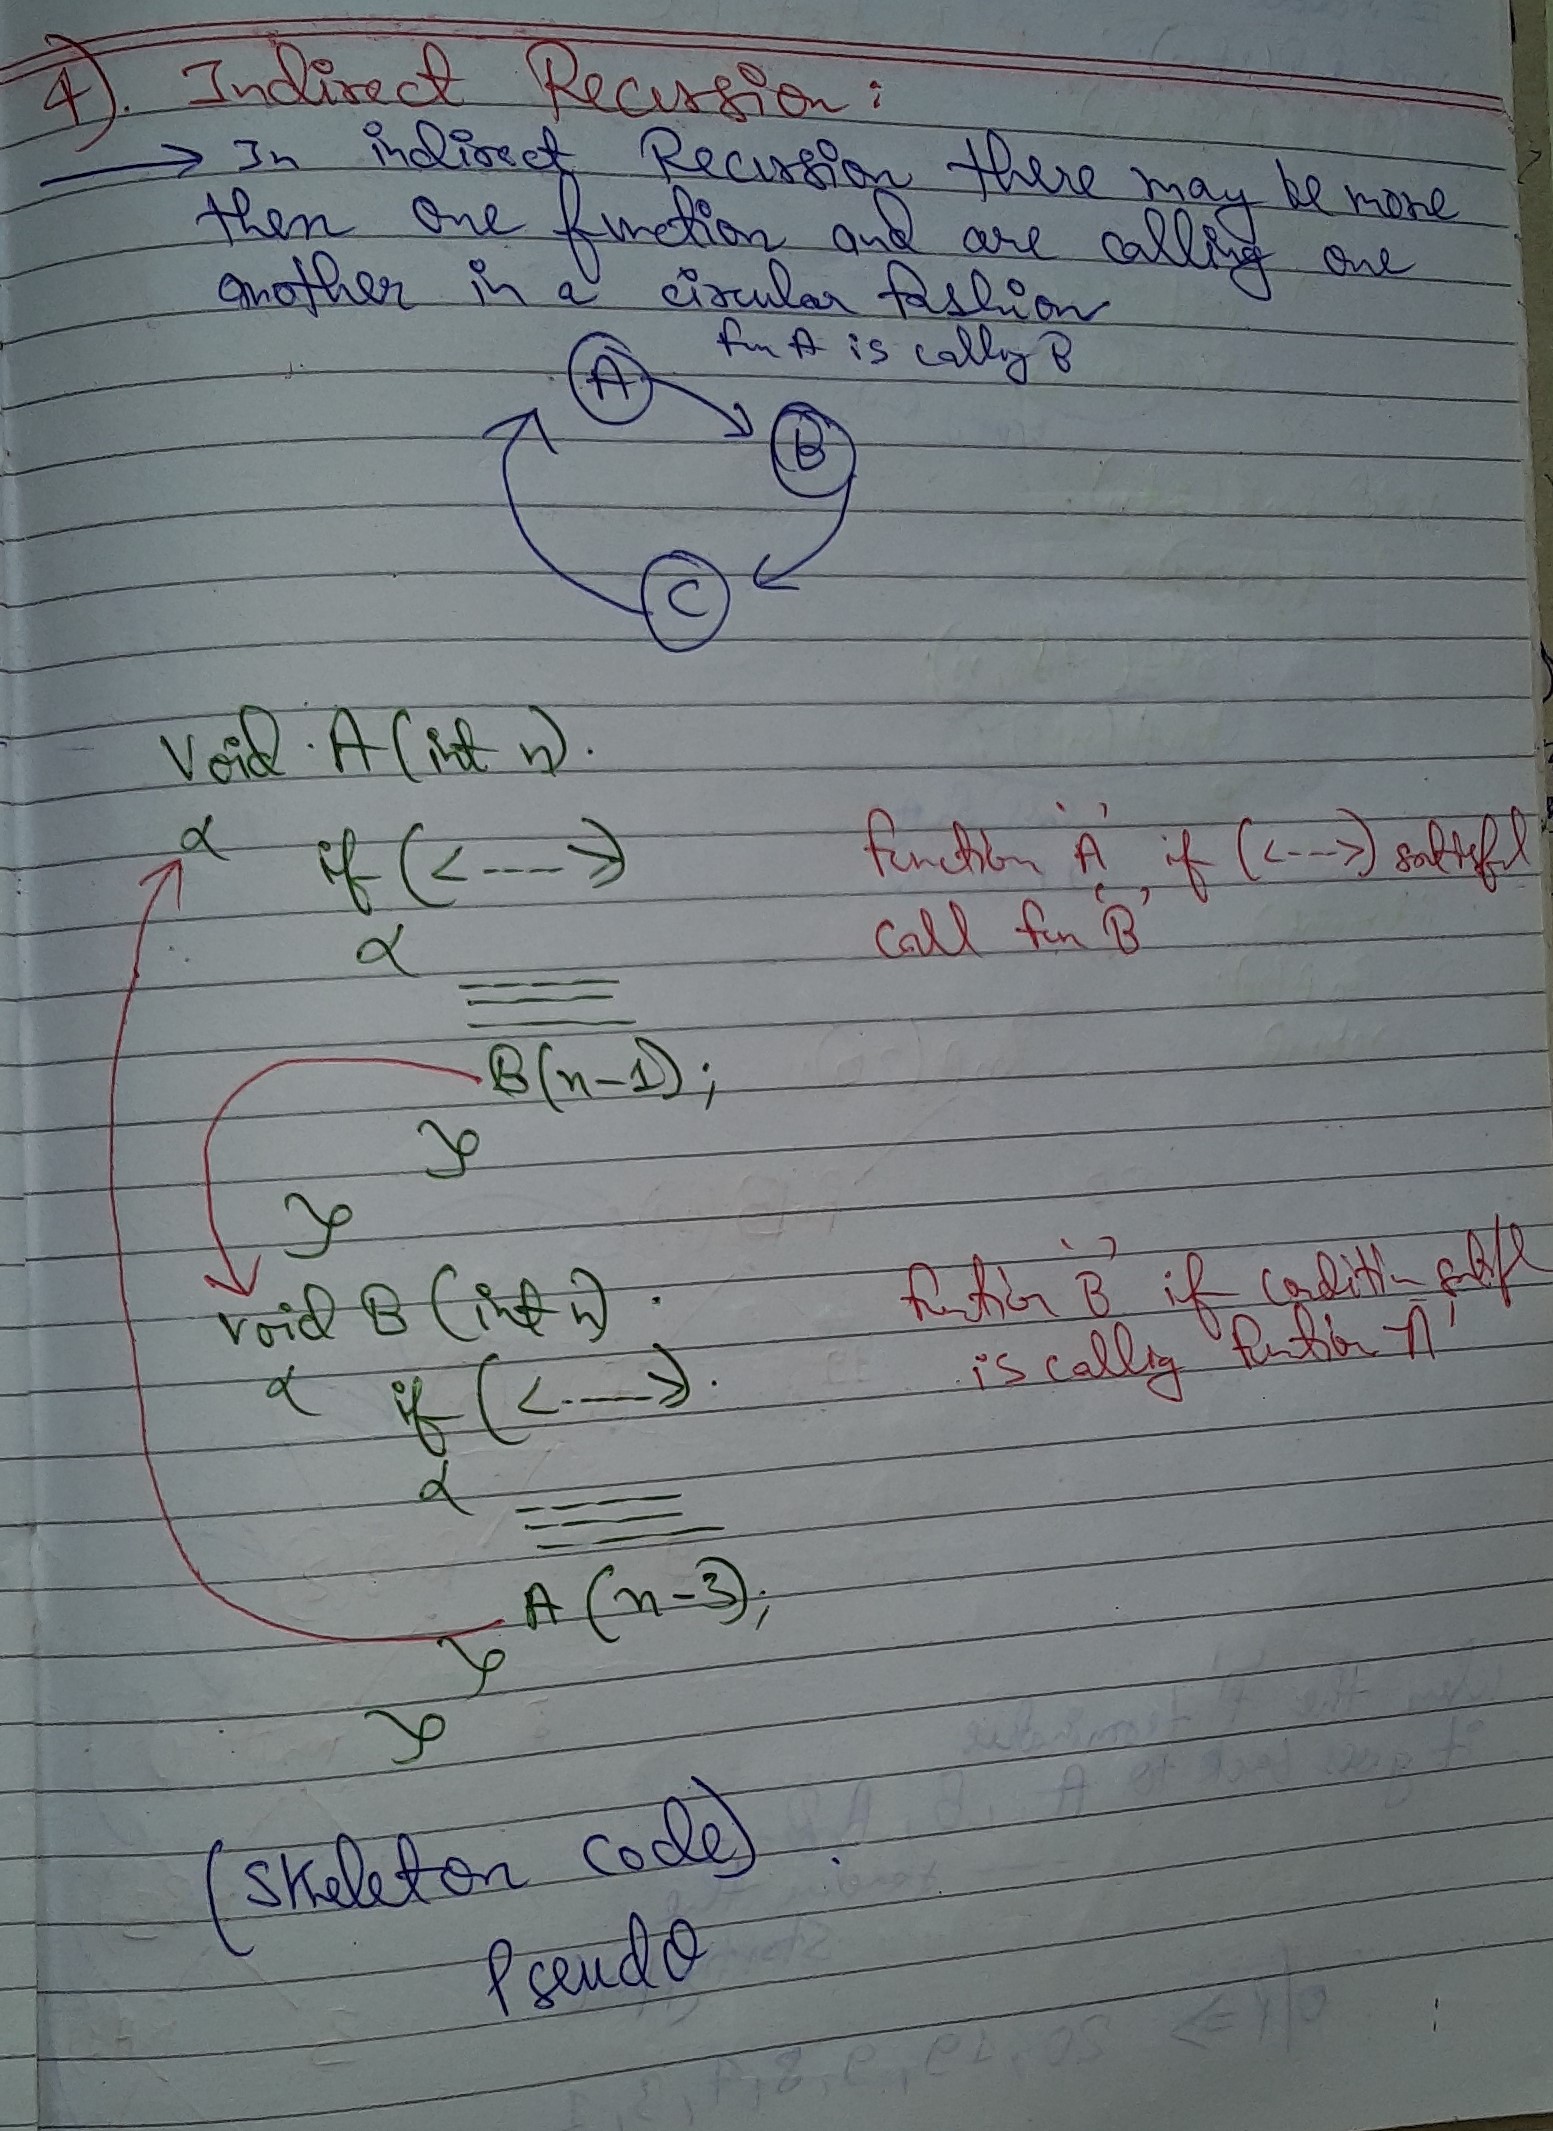 4). Indirect Recursion:
→ In indirect Recursion there may be more
then one function and are calling one
another in a circular fashion
fun A is calling B
A
B
C
Void A(int n).
{ if (<---->)
{
B(n-1);
}
}
function 'A' if (<--->)
call fun 'B'
void B(int n)
{ if (<---->).
{
A(n-3);
}
}
function 'B' if condition
is calling function 'A'
(skeleton code)
Pseudo